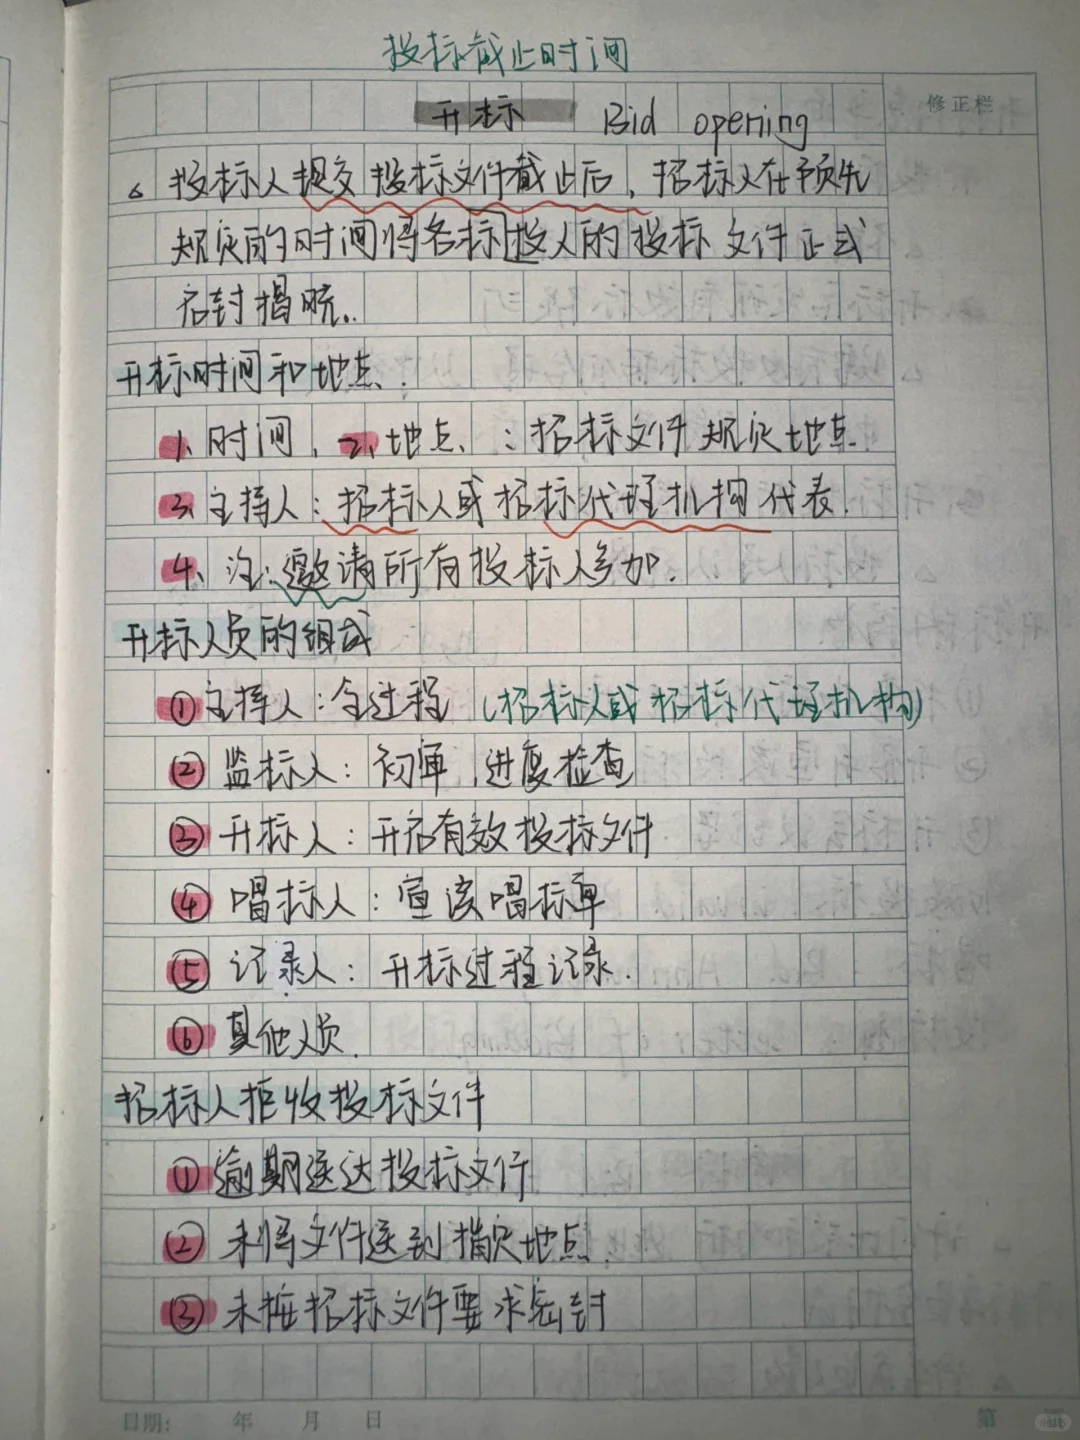 投标截止时间
开标 Bid opening
修正栏
投标人提交投标文件截止后,招标人在预先
规定的时间将各标投人的投标文件正式
启封揭晓.
开标时间和地点.
1、时间,2、地点、:招标文件规定地点.
3、主持人:招标人或招标代理机构代表.
4、注:邀请所有投标人参加.
开标人员的组成
①主持人:全过程(招标人或招标代理机构)
②监标人:初审,进度检查
③开标人:开启有效投标文件
④唱标人:宣读唱标单
⑤记录人:开标过程记录.
⑥其他人员.
招标人拒收投标文件
①逾期送达投标文件
②未将文件送到指定地点.
③未按招标文件要求密封
日期: 年 月 日
第
小红书